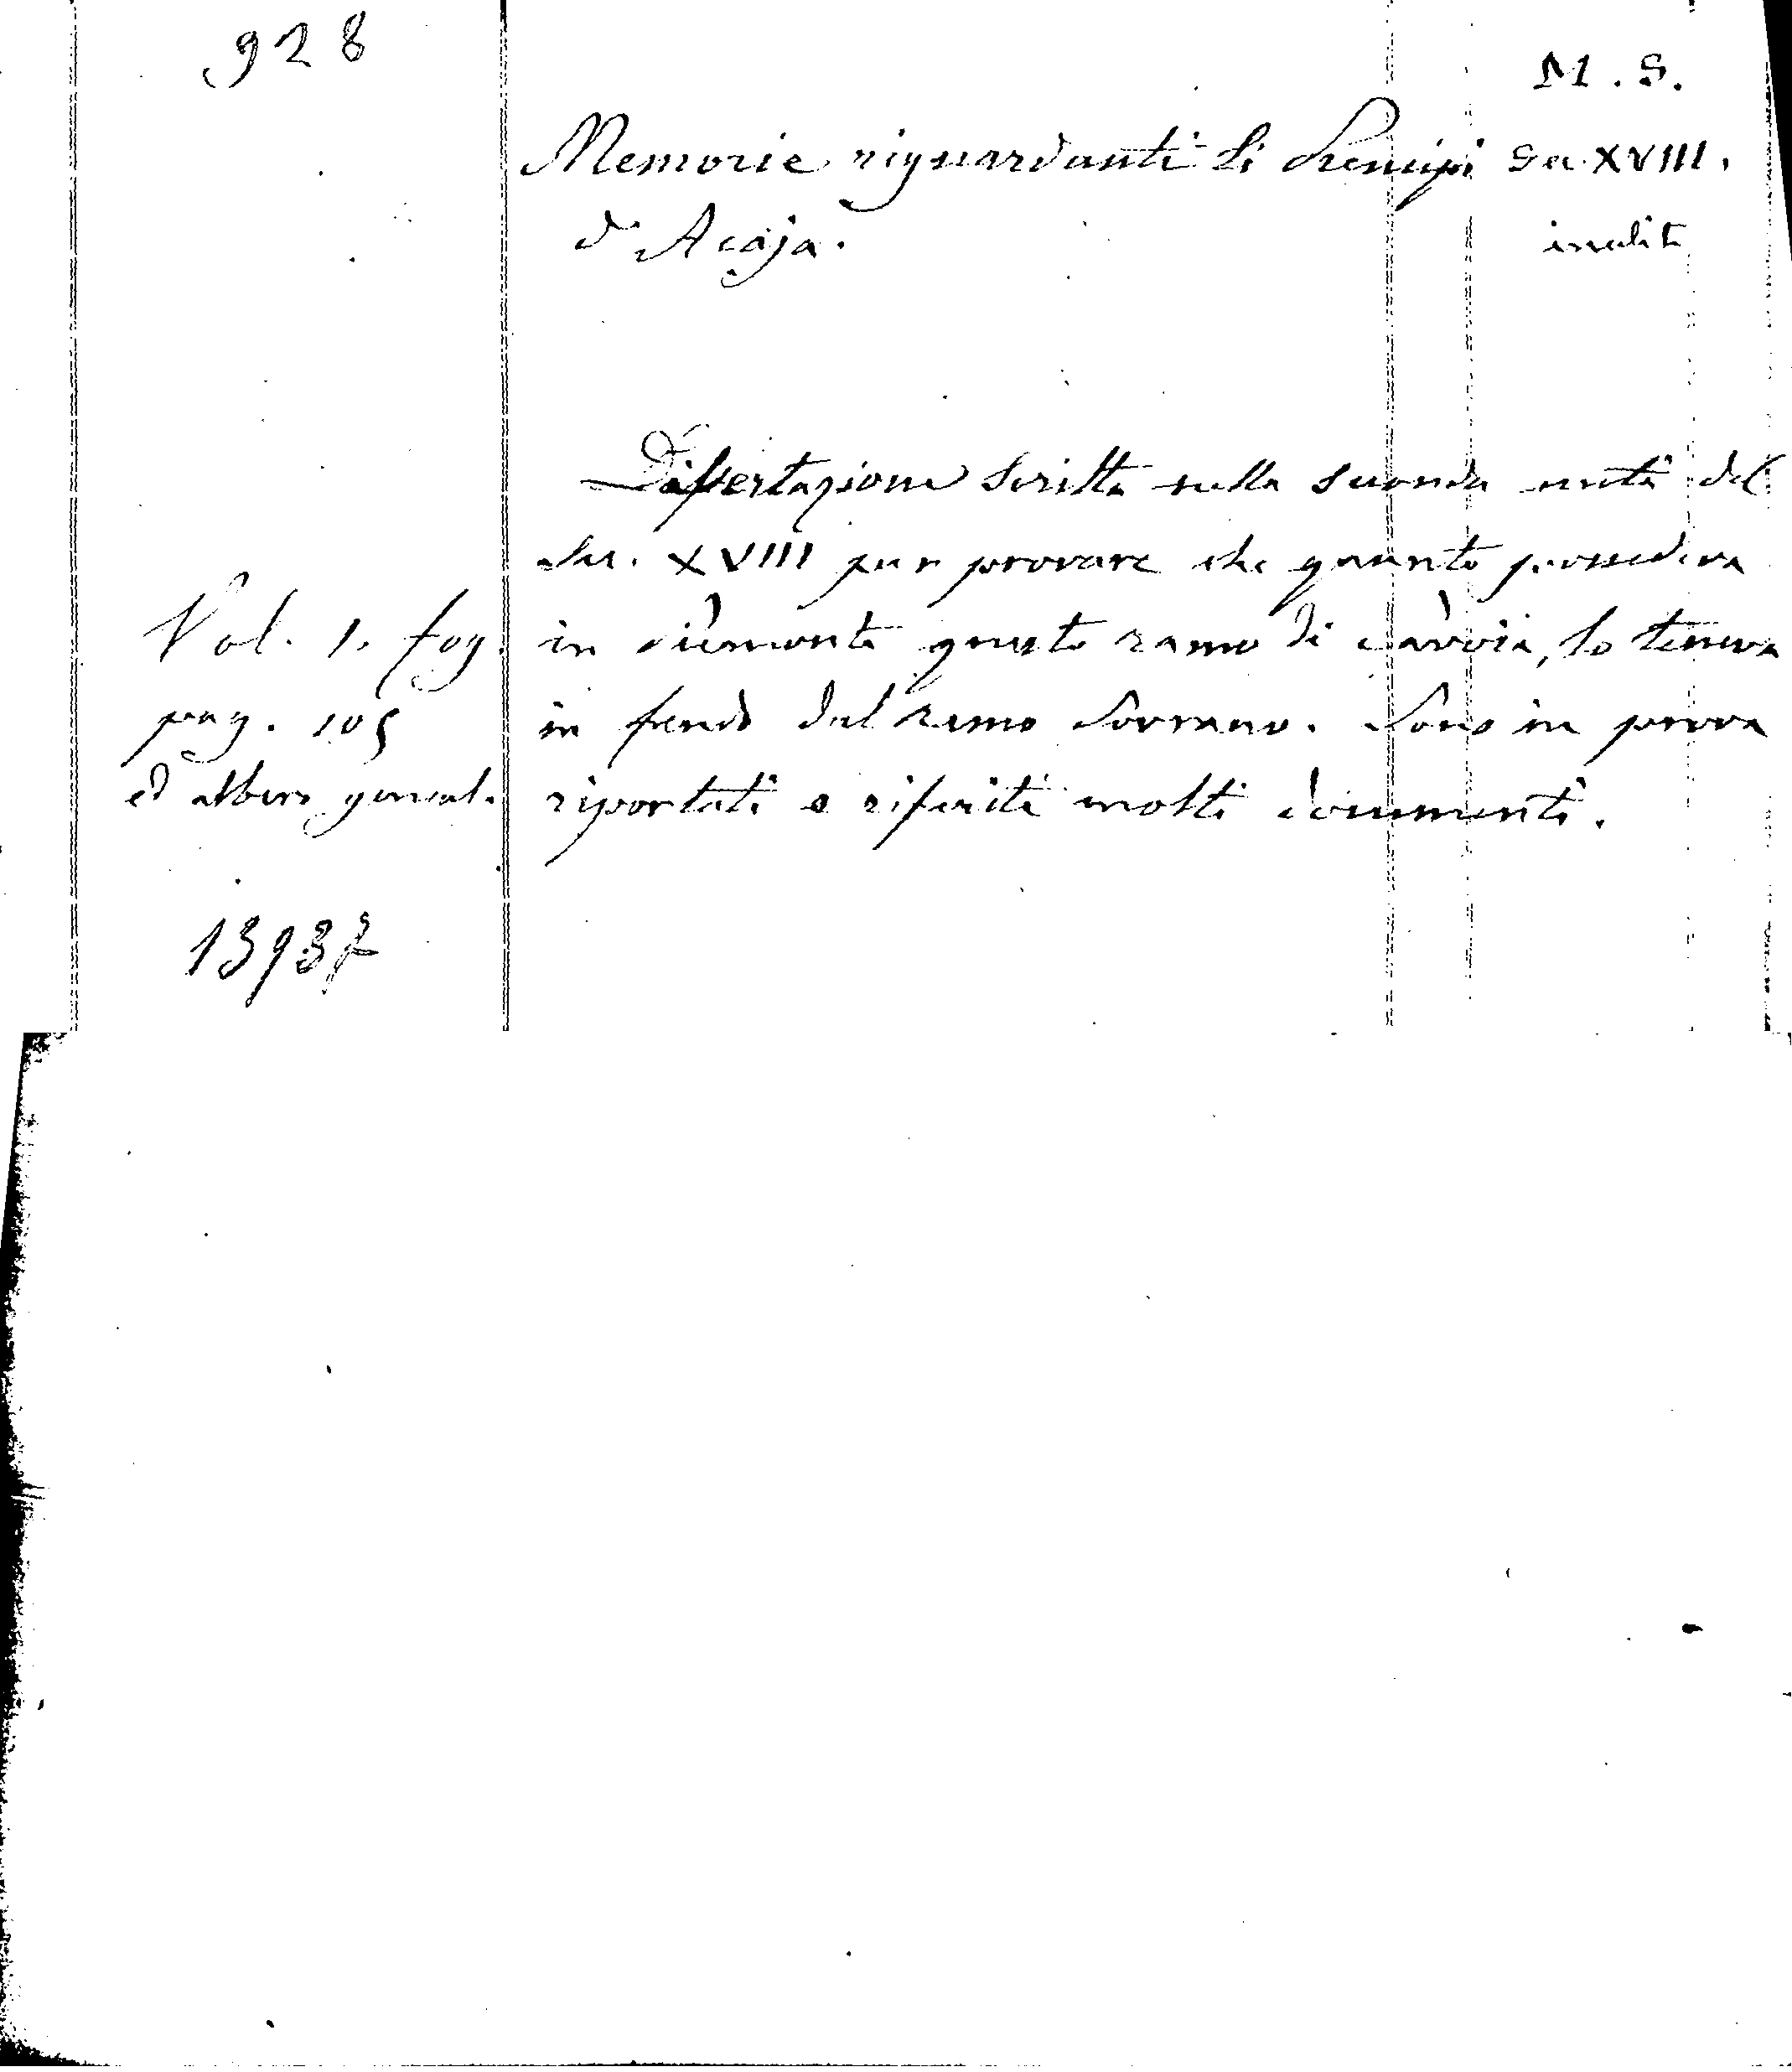 928
M. S.
Memorie riguardanti li Principi
Sec. XVIII.
d'Acaja.
inedito
Dissertazione scritta nella seconda metà del
Sec. XVIII per provare che quanto possedeva
Vol. 1. fog.
in Piemonte questo ramo di Savoia, lo teneva
pag. 105
in feudo dal ramo Sovrano. Sono in prova
ed albero geneal.
riportati e riferiti molti documenti.
13937